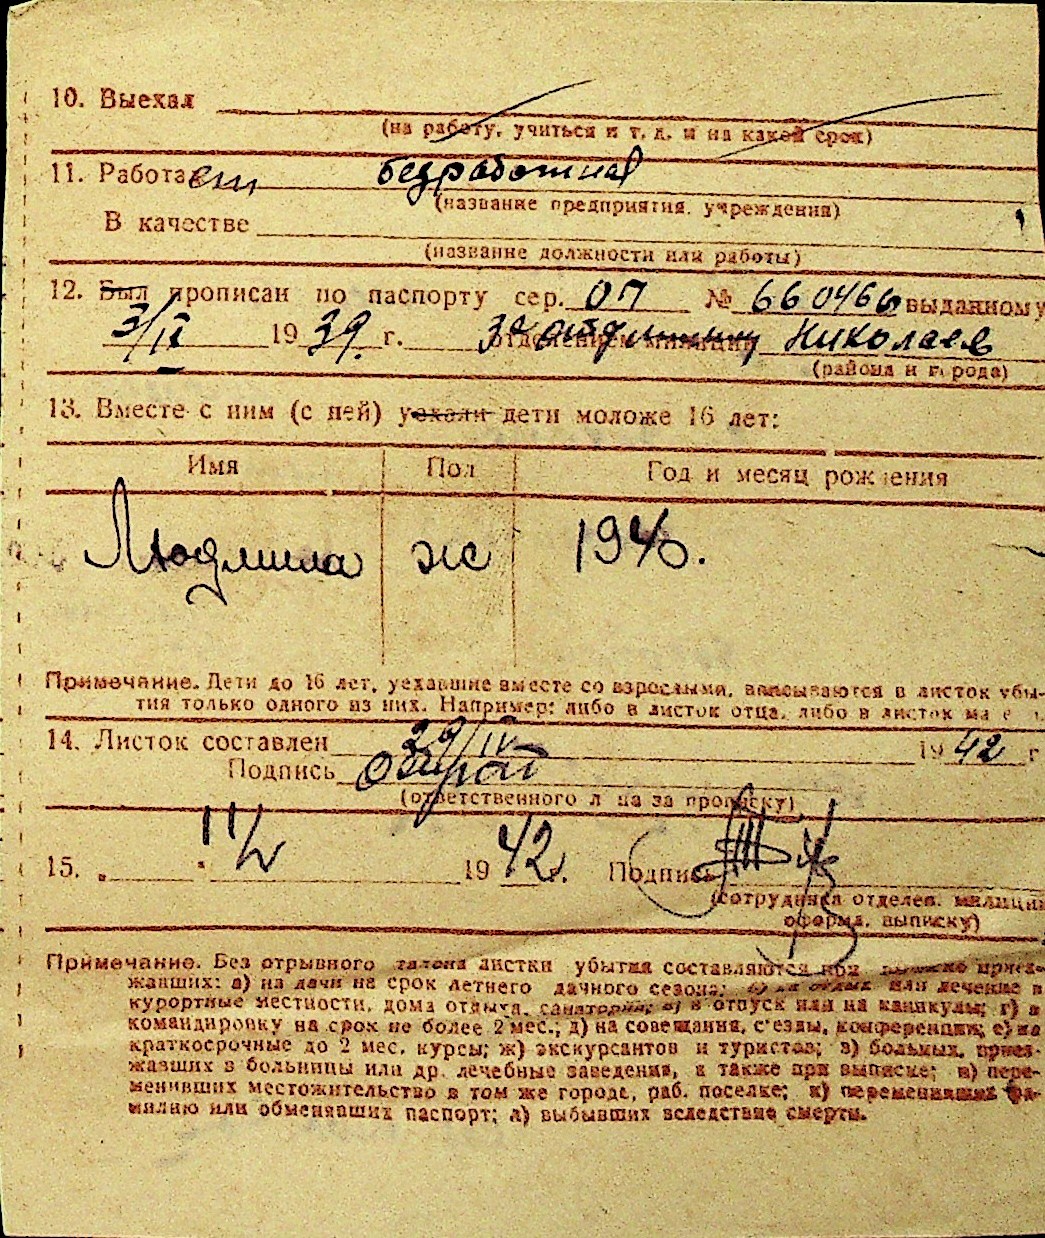 10. Выехал
(на работу, учиться и т. д. и на какой срок)
11. Работает безработная
(название предприятия, учреждения)
В качестве
(название должности или работы)
12. Был прописан по паспорту сер. ОП № 660466 выданному
3/II 1939 г. 3е отделением милиции Николаев
(района и города)
13. Вместе с ним (с ней) уехали дети моложе 16 лет:
Имя Пол Год и месяц рождения
Людмила ж 1940.
Примечание. Дети до 16 лет, уехавшие вместе со взрослыми, вписываются в листок убы-
тия только одного из них. Например: либо в листок отца, либо в листок ма
14. Листок составлен 29/IV 1942 г
Подпись
(ответственного лица за прописку)
15. 1942 г. Подпись
(сотрудника отделен. милиции
оформл. выписку)
Примечание. Без отрывного талона листки убытия составляются при выписке приез-
жавших: а) на дачи на срок летнего дачного сезона; б) на отдых или лечение в
курортные местности, дома отдыха, санатории; в) в отпуск или на каникулы; г) в
командировку на срок не более 2 мес.; д) на совещания, с'езды, конференции; е) на
краткосрочные до 2 мес. курсы; ж) экскурсантов и туристов; з) больных, приез-
жавших в больницы или др. лечебные заведения, а также при выписке; и) пере-
менивших местожительство в том же городе, раб. поселке; к) переменивших фа-
милию или обменявших паспорт; л) выбывших вследствие смерти.